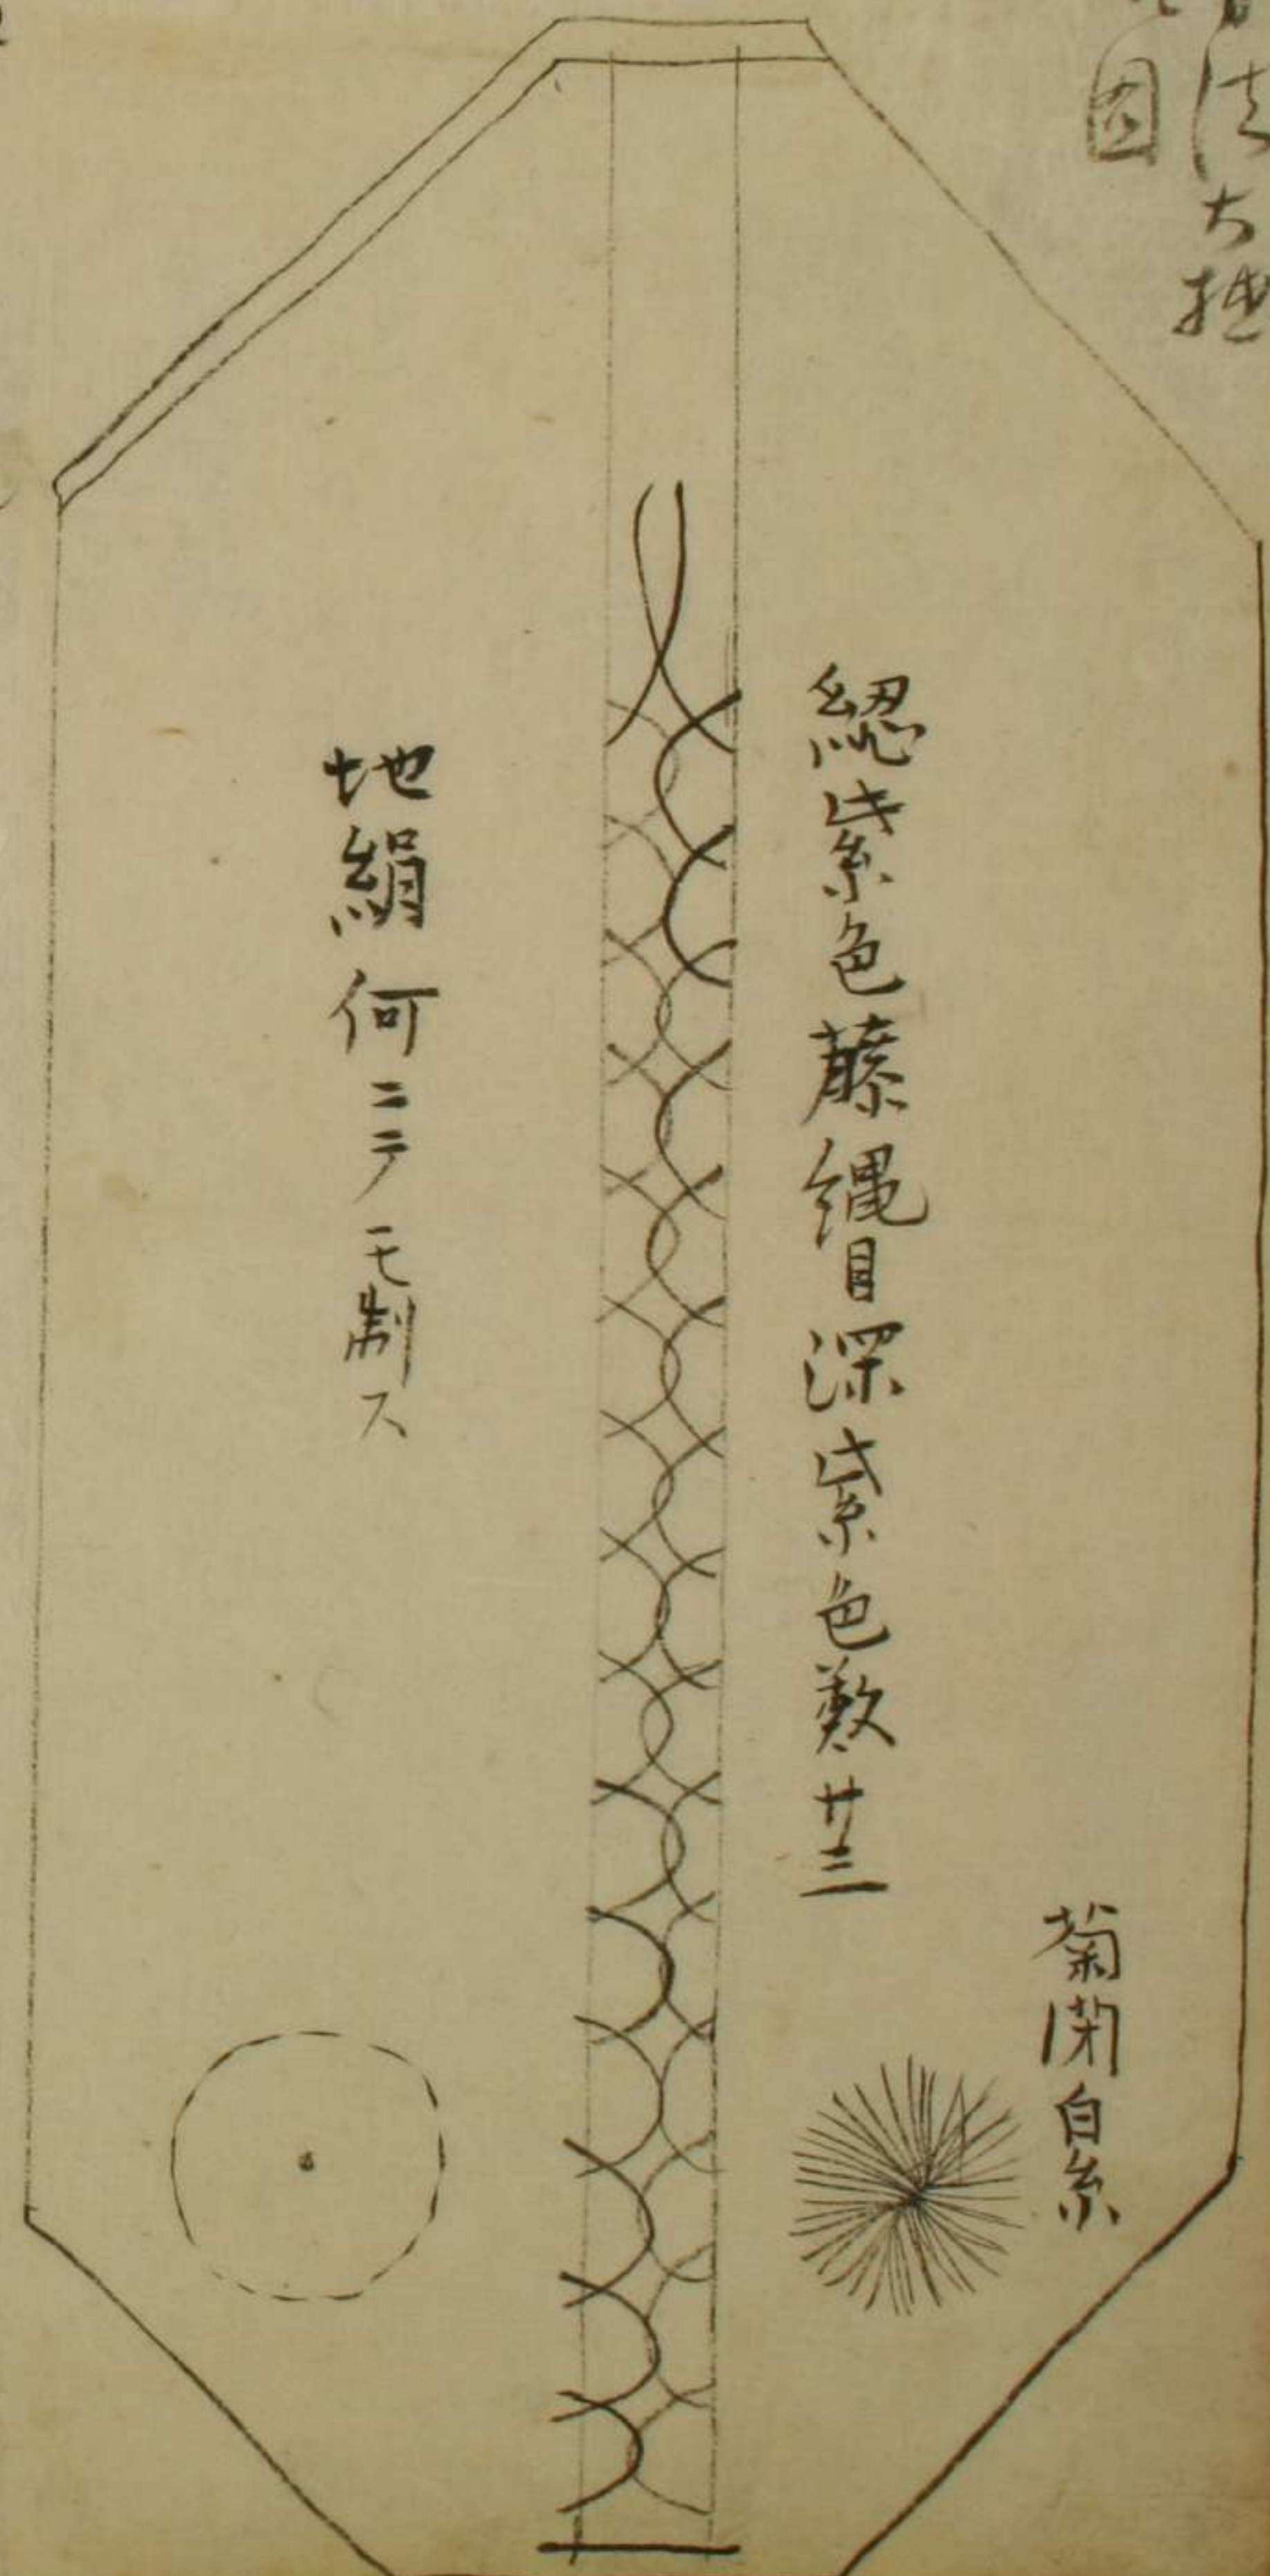 法大
図
総紫色藤縄目深紫色数廿三
菊閉白糸
地絹何ニテモ制ス